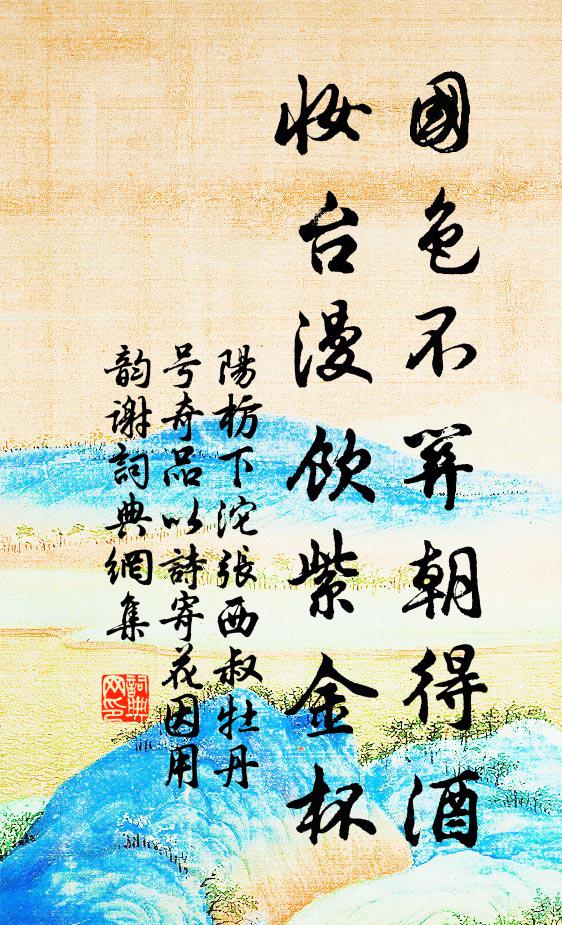 國色不算朝得酒
妝台漫飲紫金杯
陽枋下沱張西叔牡丹
号奇品以詩寄花因用
韵谢詞典網集
詞典网印